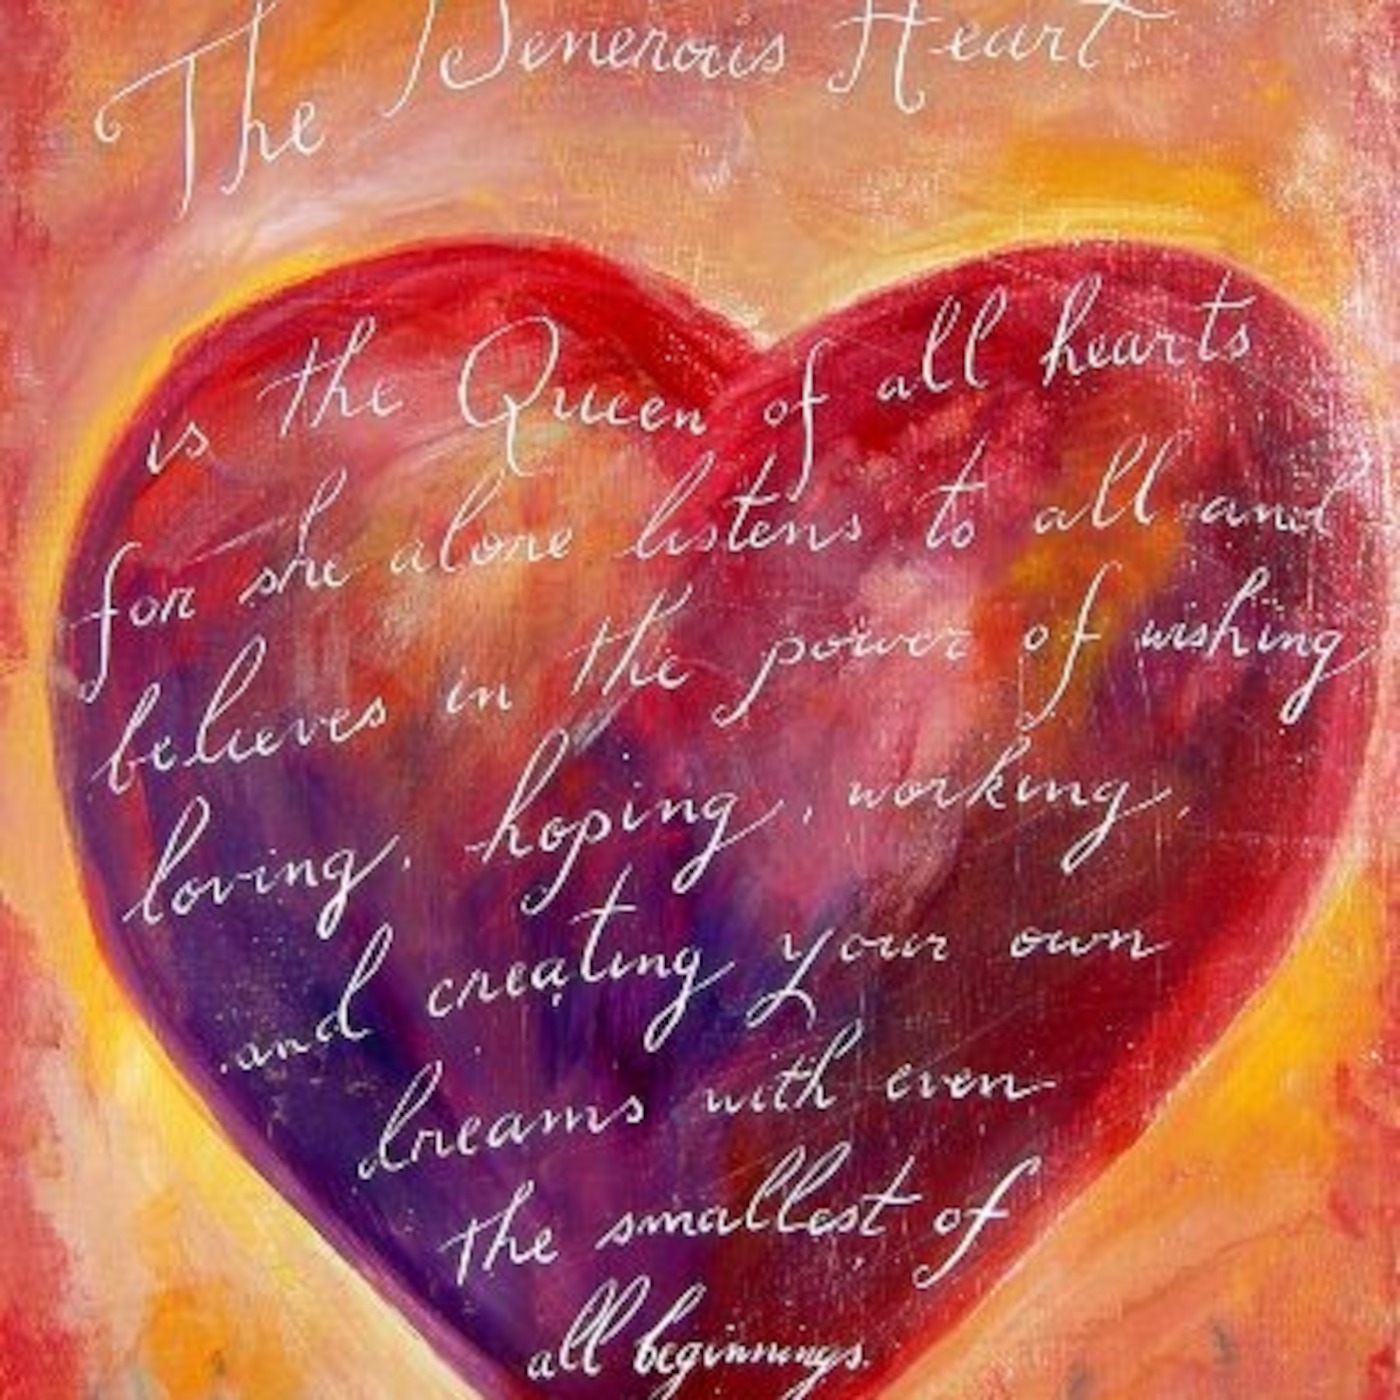 The Generous Heart
is the Queen of all hearts
for she alone listens to all and
believes in the power of wishing
loving, hoping, working,
and creating your own
dreams with even
the smallest of
all beginnings.